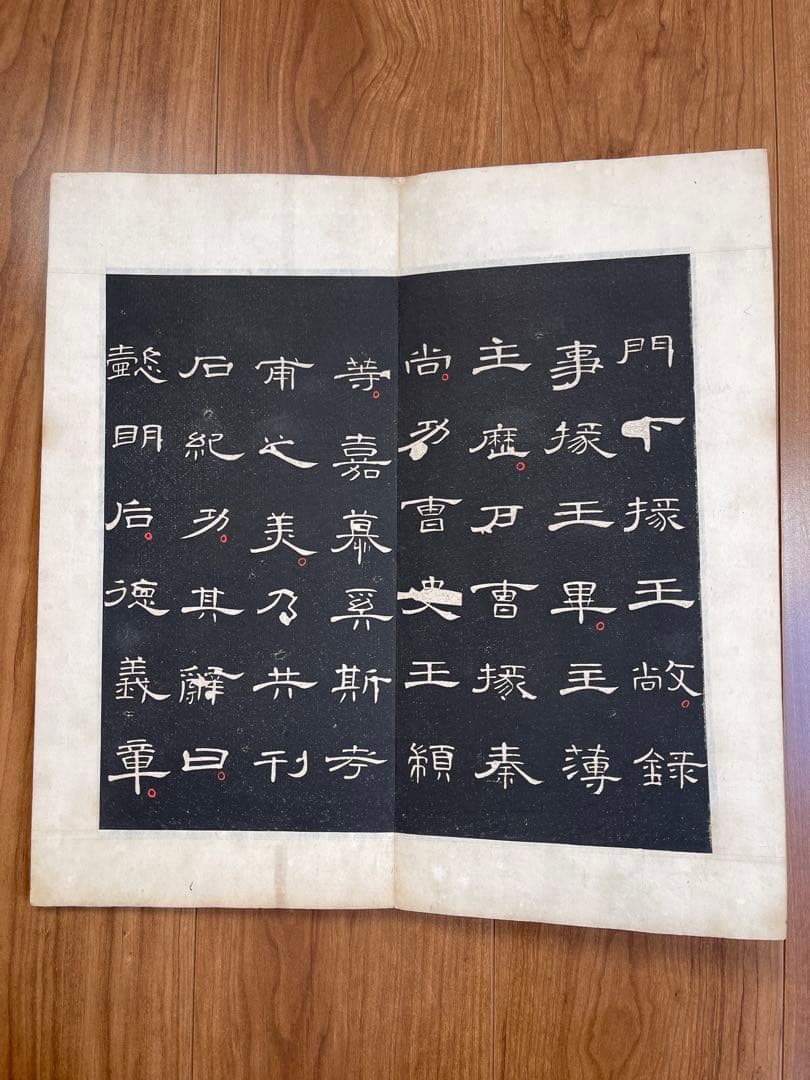 門下掾王敞録
事掾王畢主薄
王歷戶曹掾秦
尚功曹史王顓
等嘉慕奚斯考
甫之美乃共刊
石紀功其辭曰
懿明后德義章